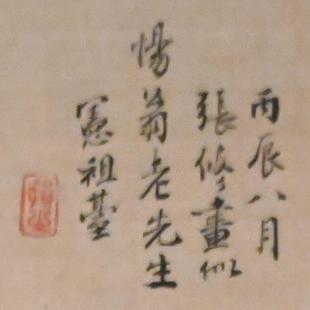 丙辰八月
張修畫似
惕翁老先生
憲祖臺